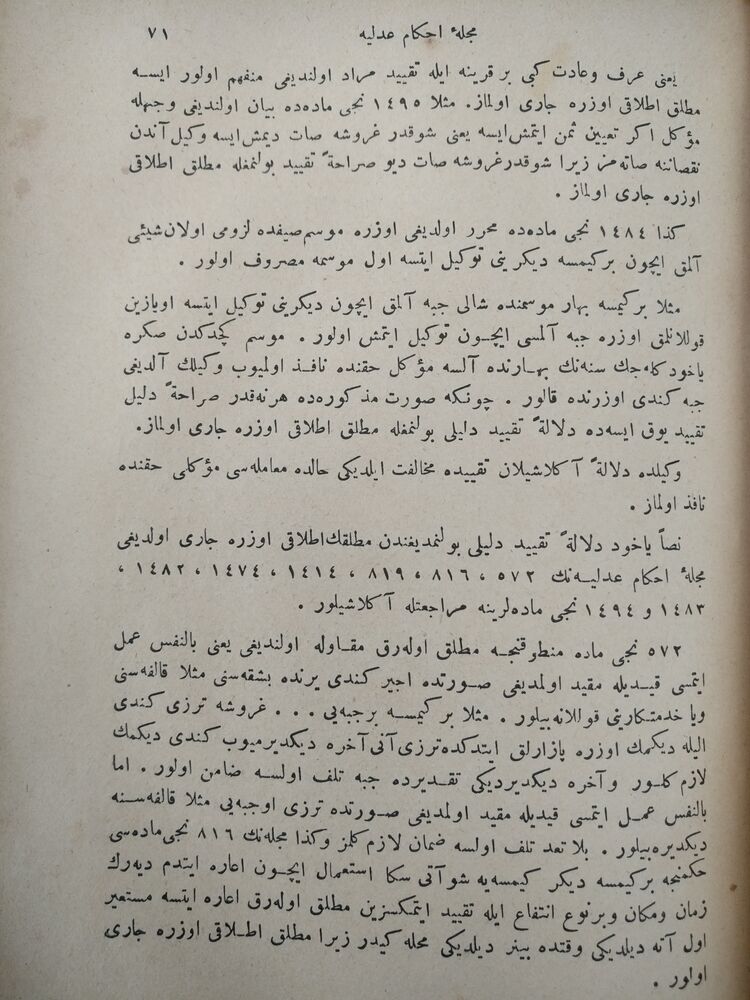 مجلهٔ احكام عدليه ٧١
يعنى عرف وعادت كبى بر قرينه ايله تقييد مراد اولنديغى منفهم اولور ايسه
مطلق اطلاقى اوزره جارى اولماز. مثلا ١٤٩٥ نجى ماده‌ده بيان اولنديغى وجهله
مؤكل اكر تعيين ثمن ايتمش‌ايسه يعنى شوقدر غروشه صات ديمش‌ايسه وكيل آندن
نقصاننه صاته‌مز زيرا شوقدرغروشه صات ديو صراحةً تقييد بولنمغله مطلق اطلاقى
اوزره جارى اولماز .
كذا ١٤٨٤ نجى ماده‌ده محرر اولديغى اوزره موسم‌صيفده لزومى اولان‌شيئى
آلمق ايچون بركيمسه ديكر ينى توكيل ايتسه اول موسمه مصروف اولور .
مثلا بركيمسه بهار موسمنده شالى جبه آلمق ايچون ديكرينى توكيل ايتسه اويازين
قوللانلمق اوزره جبه آلمسى ايچون توكيل ايتمش اولور . موسم كچدكدن صكره
ياخود كله‌جك سنه‌نك بهارنده آلسه مؤكل حقنده نافذ اولميوب وكيلك آلديغى
جبه كندى اوزرنده قالور . چونكه صورت مذكوره‌ده هرنه‌قدر صراحةً دليل
تقييد يوق ايسه‌ده دلالةً تقييد دليلى بولنمغله مطلق اطلاقى اوزره جارى اولماز.
وكيلده دلالةً آكلاشيلان تقييده مخالفت ايلديكى حالده معامله‌سى مؤكلى حقنده
نافذ اولماز .
نصاً ياخود دلالةً تقييد دليلى بولنمديغندن مطلقك‌اطلاقى اوزره جارى اولديغى
مجلهٔ احكام عدليه‌نك ٥٧٢ ، ٨١٦ ، ٨١٩ ، ١٤١٤ ، ١٤٧٤ ، ١٤٨٢ ،
١٤٨٣ و ١٤٩٤ نجى ماده‌لرينه مراجعتله آكلاشيلور .
٥٧٢ نجى ماده منطوقنجه مطلق اوله‌رق مقاوله اولنديغى يعنى بالنفس عمل
ايتمسى قيديله مقيد اولمديغى صورتده اجير كندى يرنده بشقه‌سنى مثلا قالفه‌سنى
ويا خدمتكارينى قوللانه‌بيلور . مثلا بركيمسه برجبه‌يى . . . غروشه ترزى كندى
اليله ديكمك اوزره پازارلق ايتدكده‌ترزى‌آنى‌آخره ديكديرميوب كندى ديكمك
لازم كلور و آخره ديكديرديكى تقديرده جبه تلف اولسه ضامن اولور . اما
بالنفس عمل ايتمسى قيديله مقيد اولمديغى صورتده ترزى اوجبه‌يى مثلا قالفه‌سنه
ديكديره‌بيلور . بلا تعد تلف اولسه ضمان لازم كلمز وكذا مجله‌نك ٨١٦ نجى‌ماده‌سى
حكمنجه بركيمسه ديكر كيمسه‌يه شو آتى سكا استعمال ايچون اعاره ايتدم ديه‌رك
زمان ومكان وبرنوع انتفاع ايله تقييد ايتمكسزين مطلق اوله‌رق اعاره ايتسه مستعير
اول آته ديلديكى وقتده بينر ديلديكى محله كيدر زيرا مطلق اطلاقى اوزره جارى
اولور .